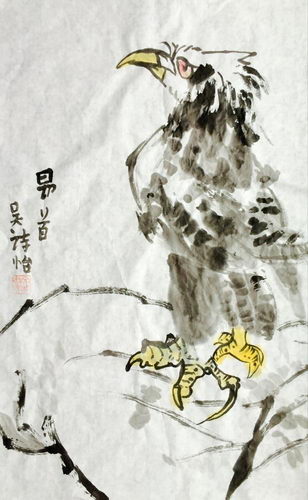 昂首
吴诗怡